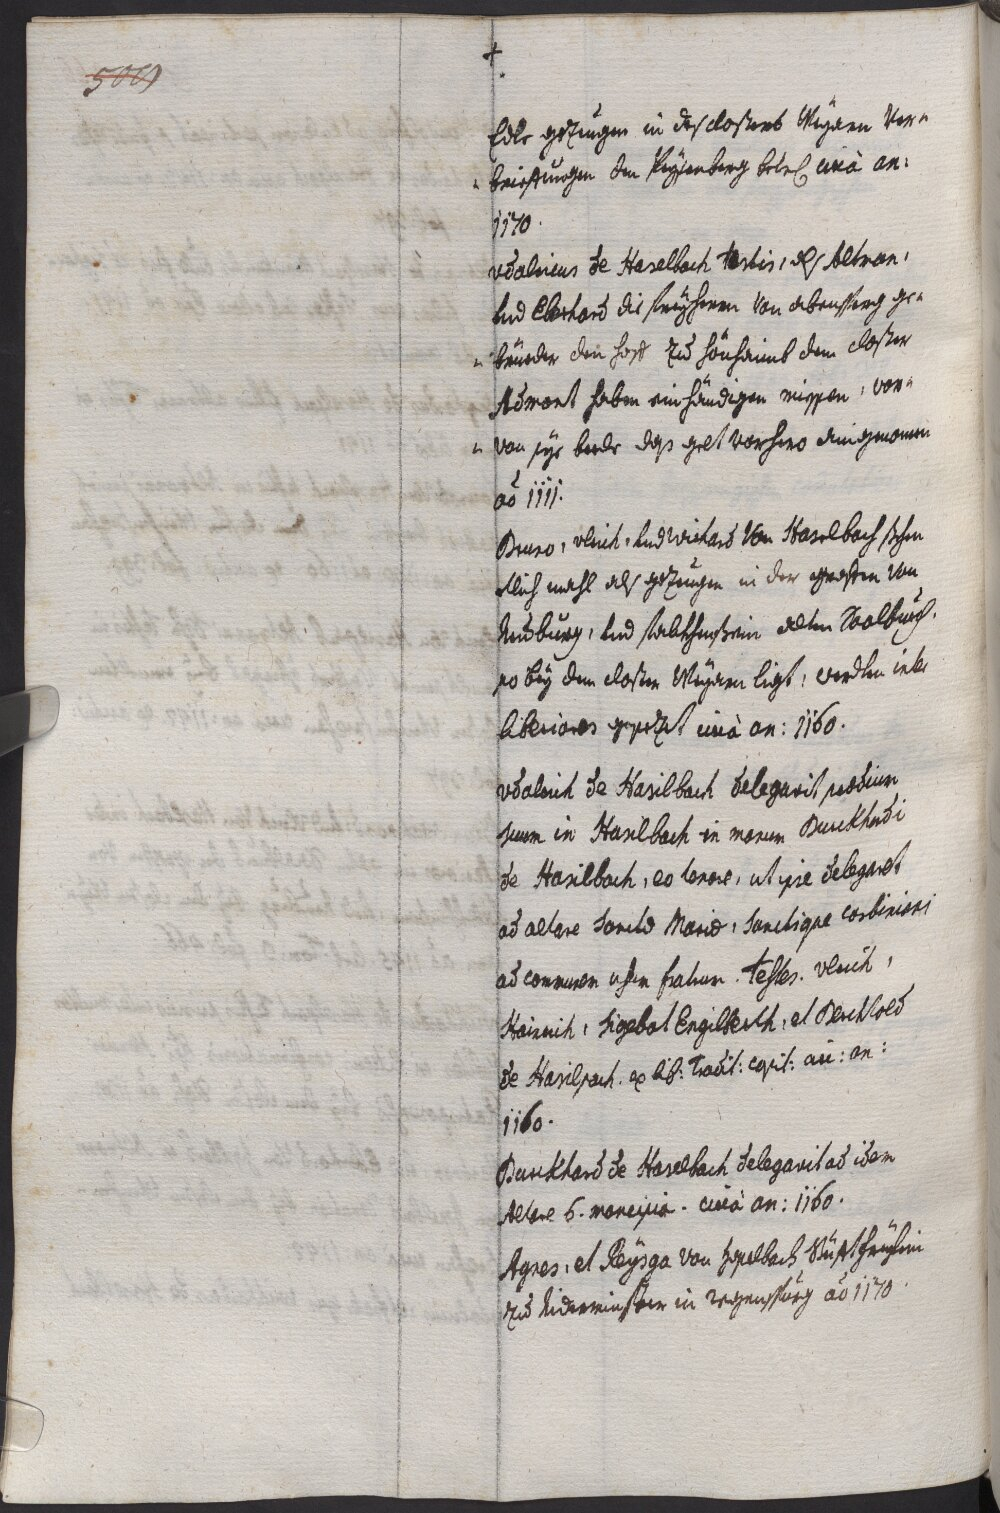 500
+
Edle gezeugen in des closters Weyarn Ver-
briefungen den Peysenberg betref circà an:
1170.
Udalricus de Haselbach testis, als Altman,
und Eberhard die freyherrn von abensperg ge-
brüeder den hoff zu hönhaimb dem closter
Admont haben einhändigen miessen, vor-
von sye beede das gelt vorhero eingenomen
ao 1111.
Bruno, Ulrich, und Wichard von Haselbach stehen
etlich mahl als gezeugen in der grafen von
Neuburg, und falkhenstein alten Saalbuech.
so bey dem closter Weyarn ligt, werden inter
liberiores gesezt circà an: 1160.
Udalrich de Hasilbach delegavit predium
suum in Hasilbach in manum Burckhardi
de Hasilbach, eo tenore, ut ipse delegaret
ad altare Sanctæ Mariæ, Sanctique Corbiniani
ad communem usum fratrum. Testes. Ulrich,
Heinrich, Sigebot Engilberth, et Berchtold
de Hasilpach. ex lib: Tradit: capit: circ: an:
1160.
Burckhard de Haselbach delegavit ad idem
Altare 6. mancipia. circà an: 1160.
Agnes, et Reysga von haselbach Stüftfreylein
zu Nidermünster in regenspurg ao 1170.